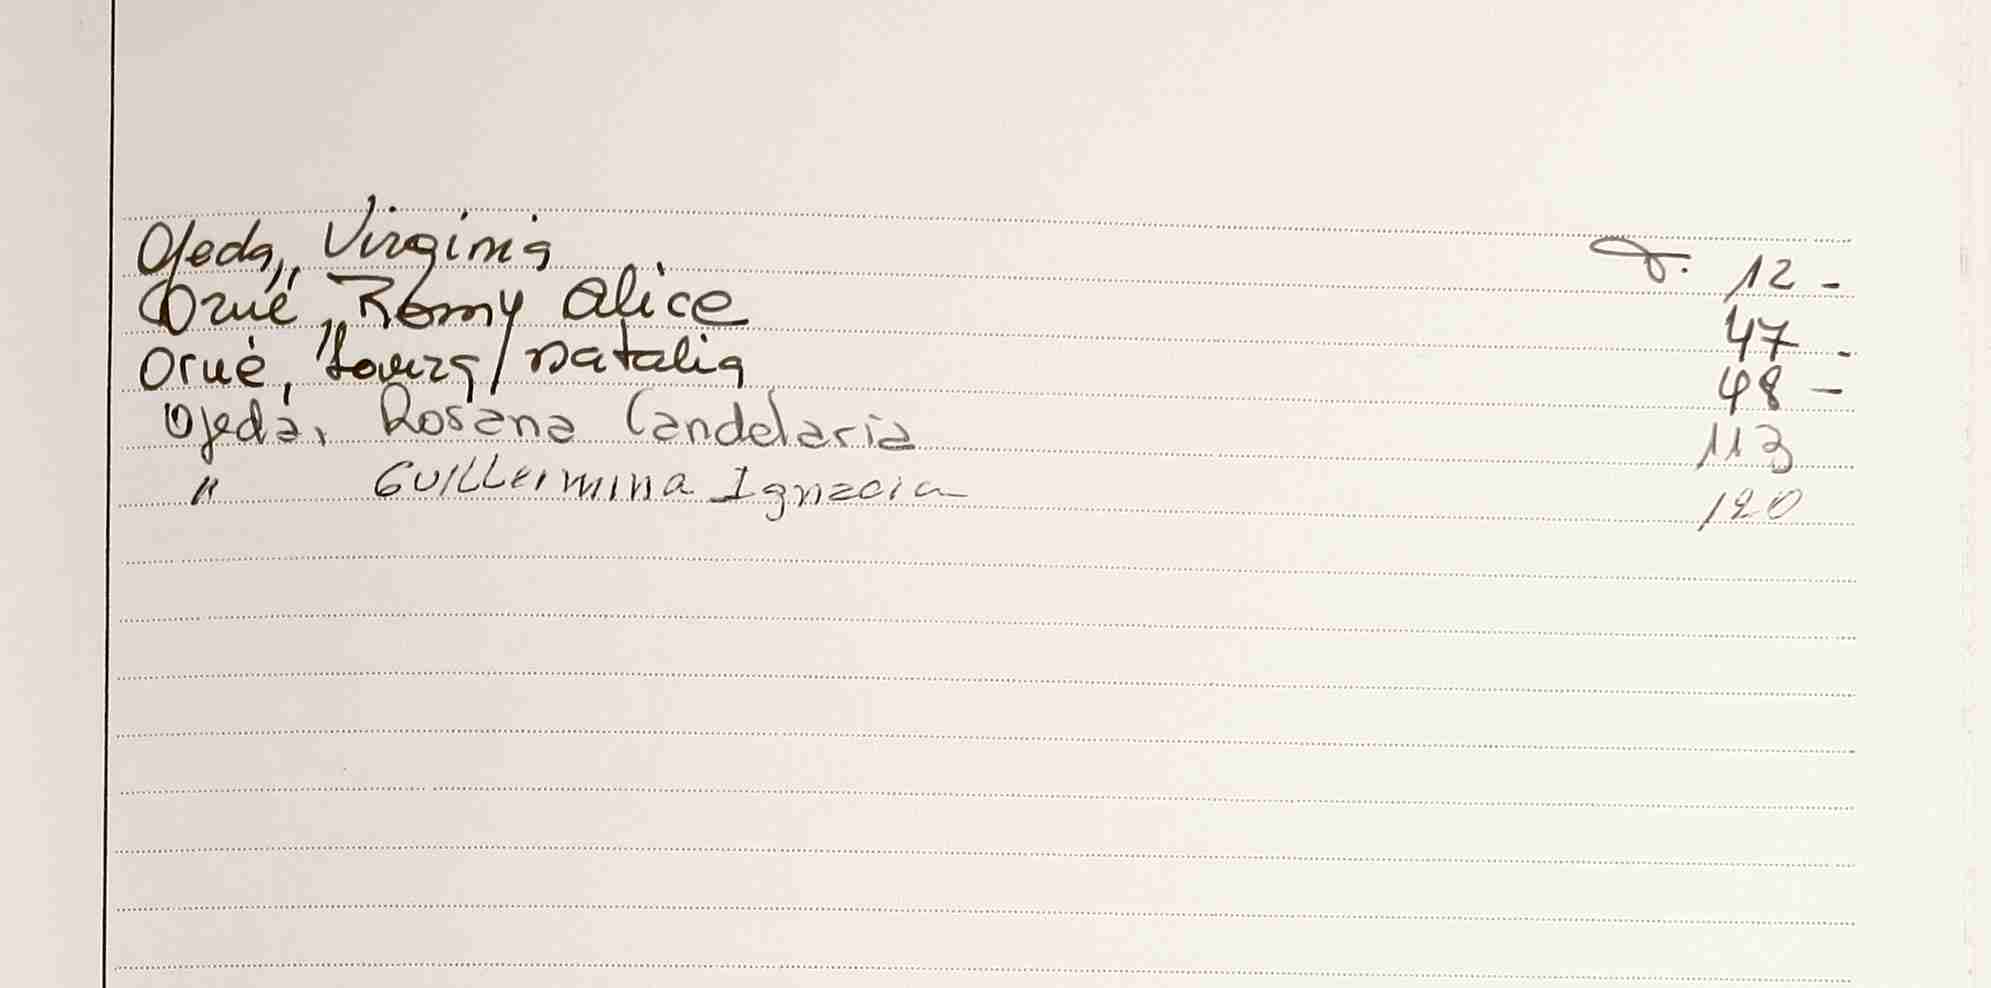 Ojeda, Virginia 12 -
Orué, Romy Alice 47 -
Orué, Laura Natalia 48 -
Ojeda, Rosana Candelaria 113
" Guillermina Ignacia 120